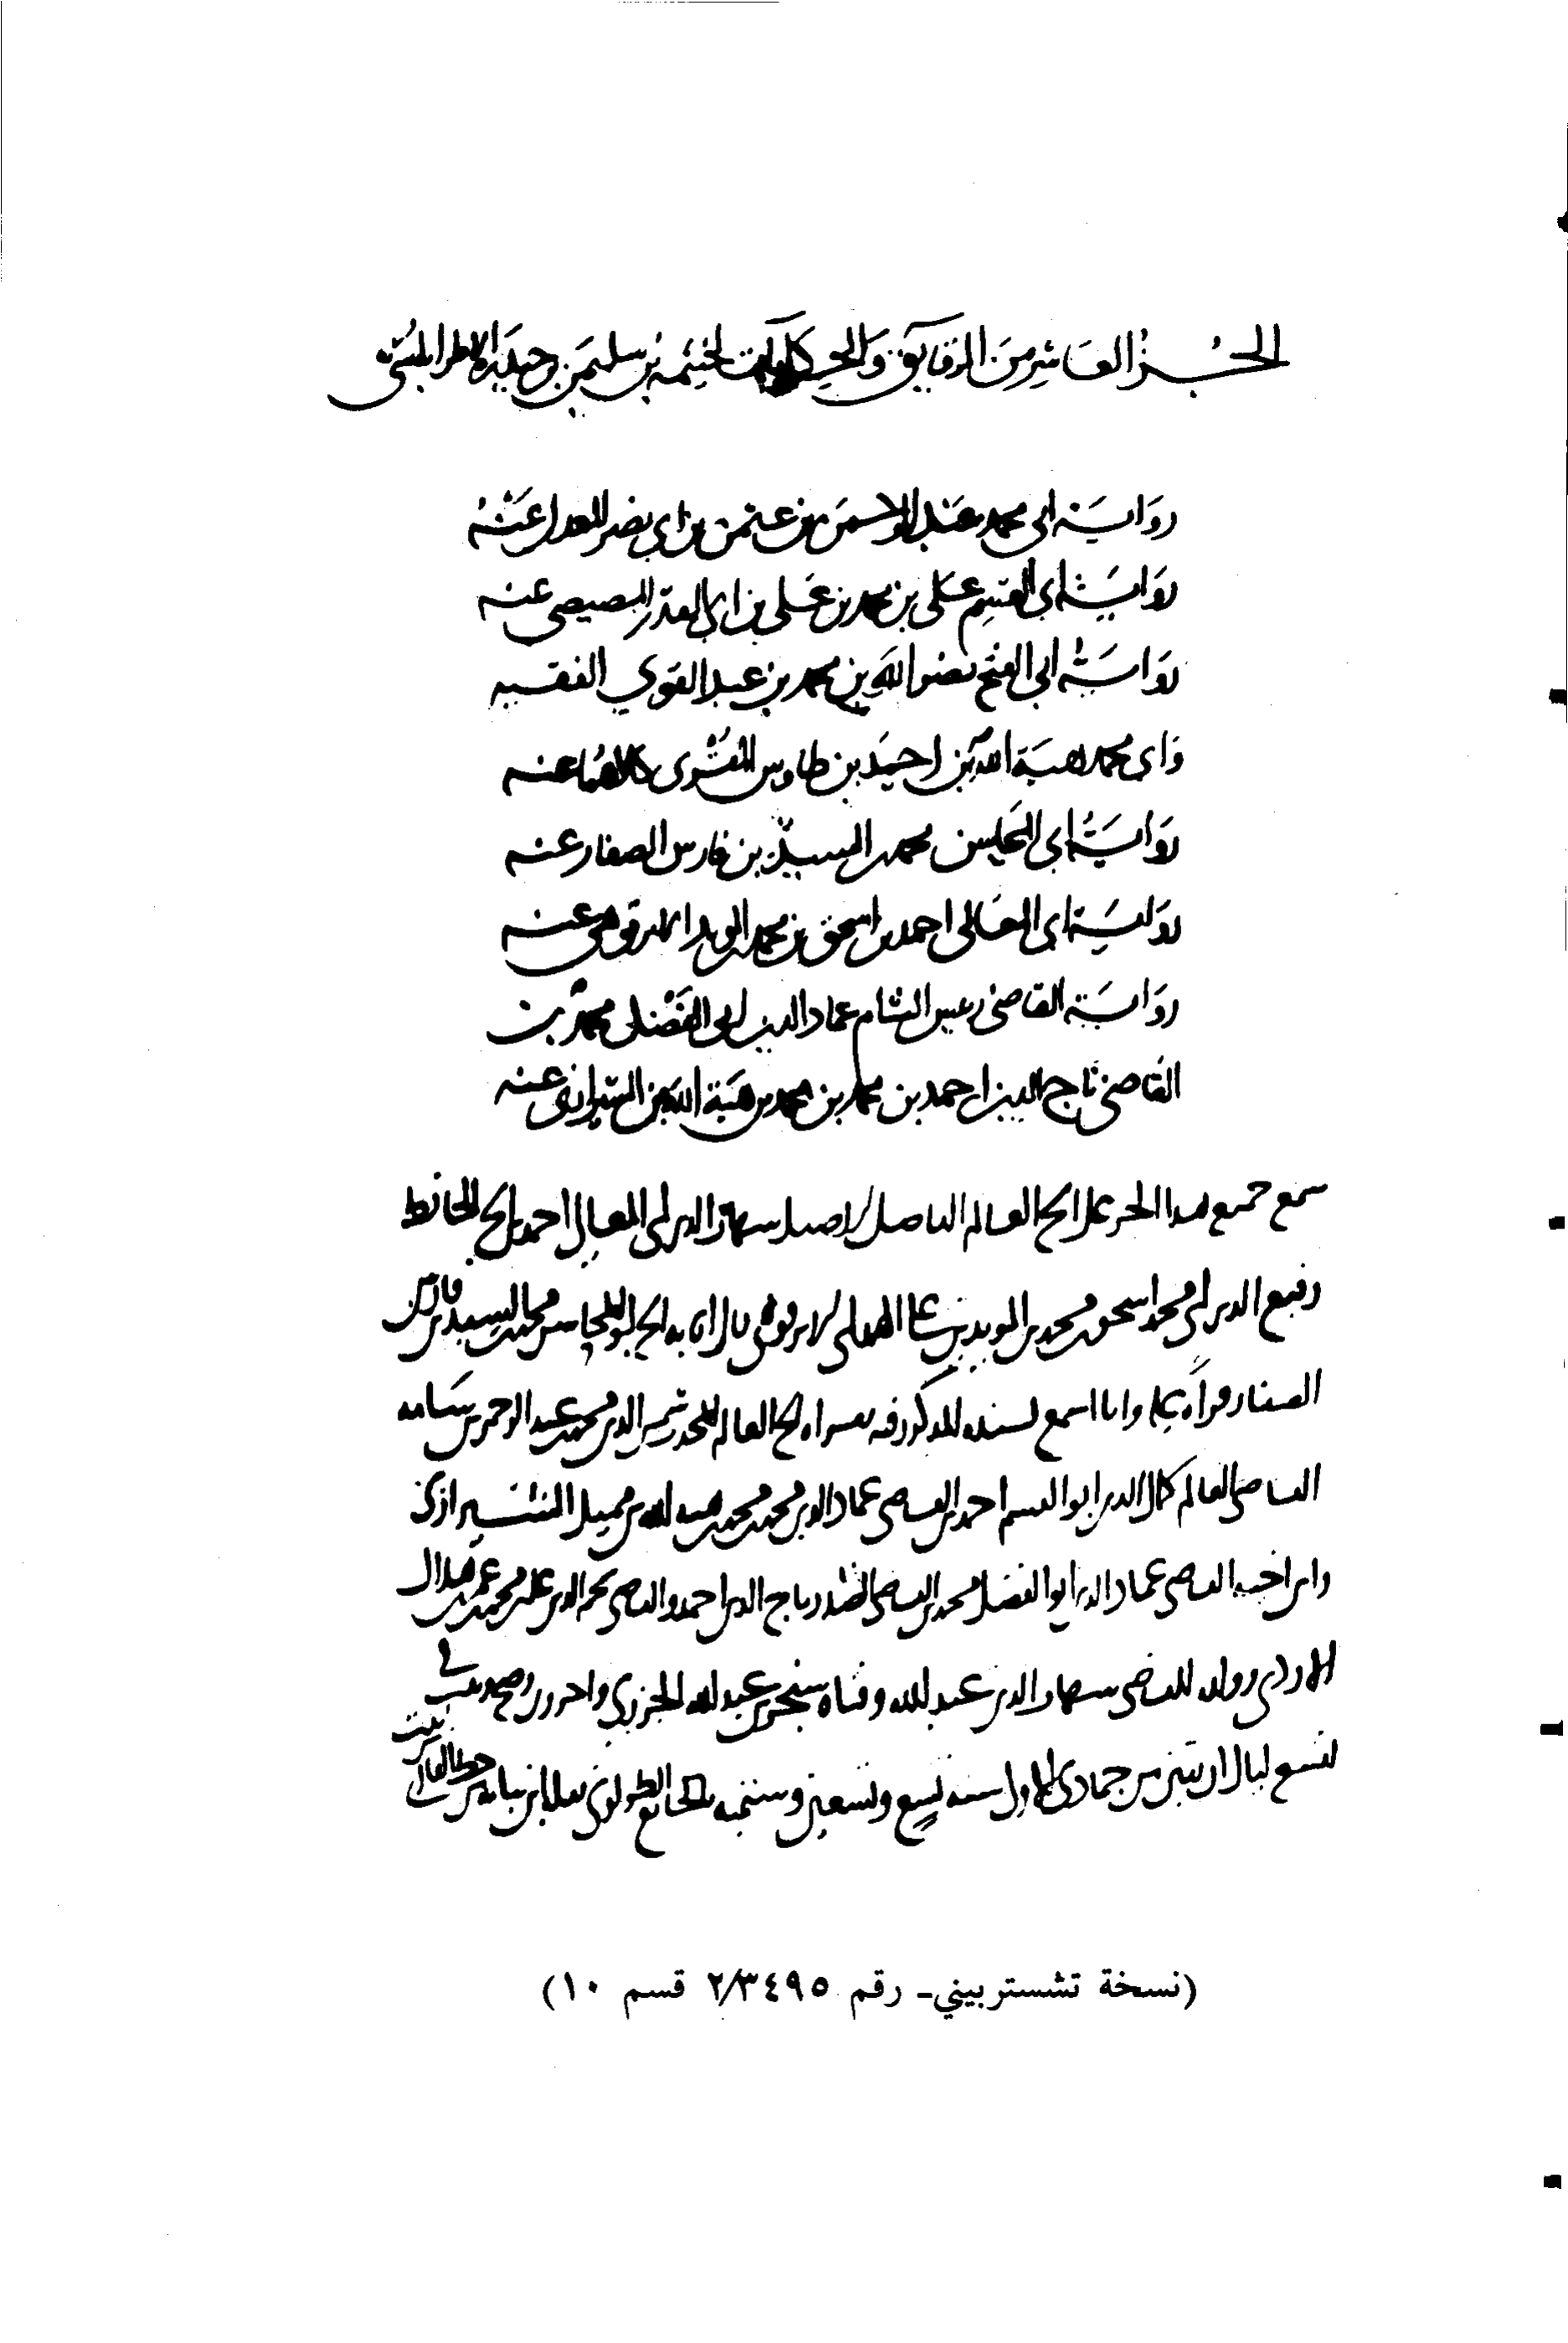 الجزء العاشر من الرقايق والحكايات لخيثمة بن سليمن بن حيدرة الاطرابلسي
رواية ابي محمد عبد الرحمن بن عثمن بن ابي نصر المعدل عنه
رواية ابي القسم علي بن محمد بن علي بن ابي العلاء المصيصي عنه
رواية ابي الفتح نصر الله بن محمد بن عبد القوي الفقيه
وابي محمد هبة الله بن احمد بن طاوس المقرى كلاهما عنه
رواية ابي المحاسن محمد بن السيد بن فارس الصفار عنه
رواية ابي المعالي احمد بن اسحق بن محمد بن المويد الابرقوهي عنه
رواية القاضي رييس الشام عماد الدين ابي الفضل محمد بن
القاضي تاج الدين احمد بن محمد بن محمد بن هبة الله بن الشيرازي عنه
سمع جميع هدا الجز على الشيخ العالم الفاضل الاصيل شهاب الدين ابي المعالي احمد بن الشيخ الحافظ
رفيع الدين ابي محمد اسحق بن محمد بن المويد بن علي الهمداني الابرقوهي ابو المحاسن محمد بن السيد بن فارس
الصفار قراة عليه وانا اسمع بسنده المدكور فيه بقراة الشيخ العالم المحدث شمس الدين محمد بن عبد الرحمن بن سامه
القاضي العالم كمال الدين ابو القسم احمد بن القاضي عماد الدين محمد بن محمد بن هبة الله بن مميل الشيرازي
وابن اخيه القاضي عماد الدين ابو الفضل محمد بن القاضي الصدر تاج الدين احمد والقاضي نجم الدين علي بن محمد بن عمر بن هلال
الازدي وولده القاضي شهاب الدين عبد الله وفتاه سنجر بن عبد الله الجزري واخرون وصح وثبت في
لتسع ليال ان بقين من جمادى الاول سنة تسع وتسعين وستمية
(نسخة تشستربيني- رقم ٢/٣٤٩٥ قسم ١٠)